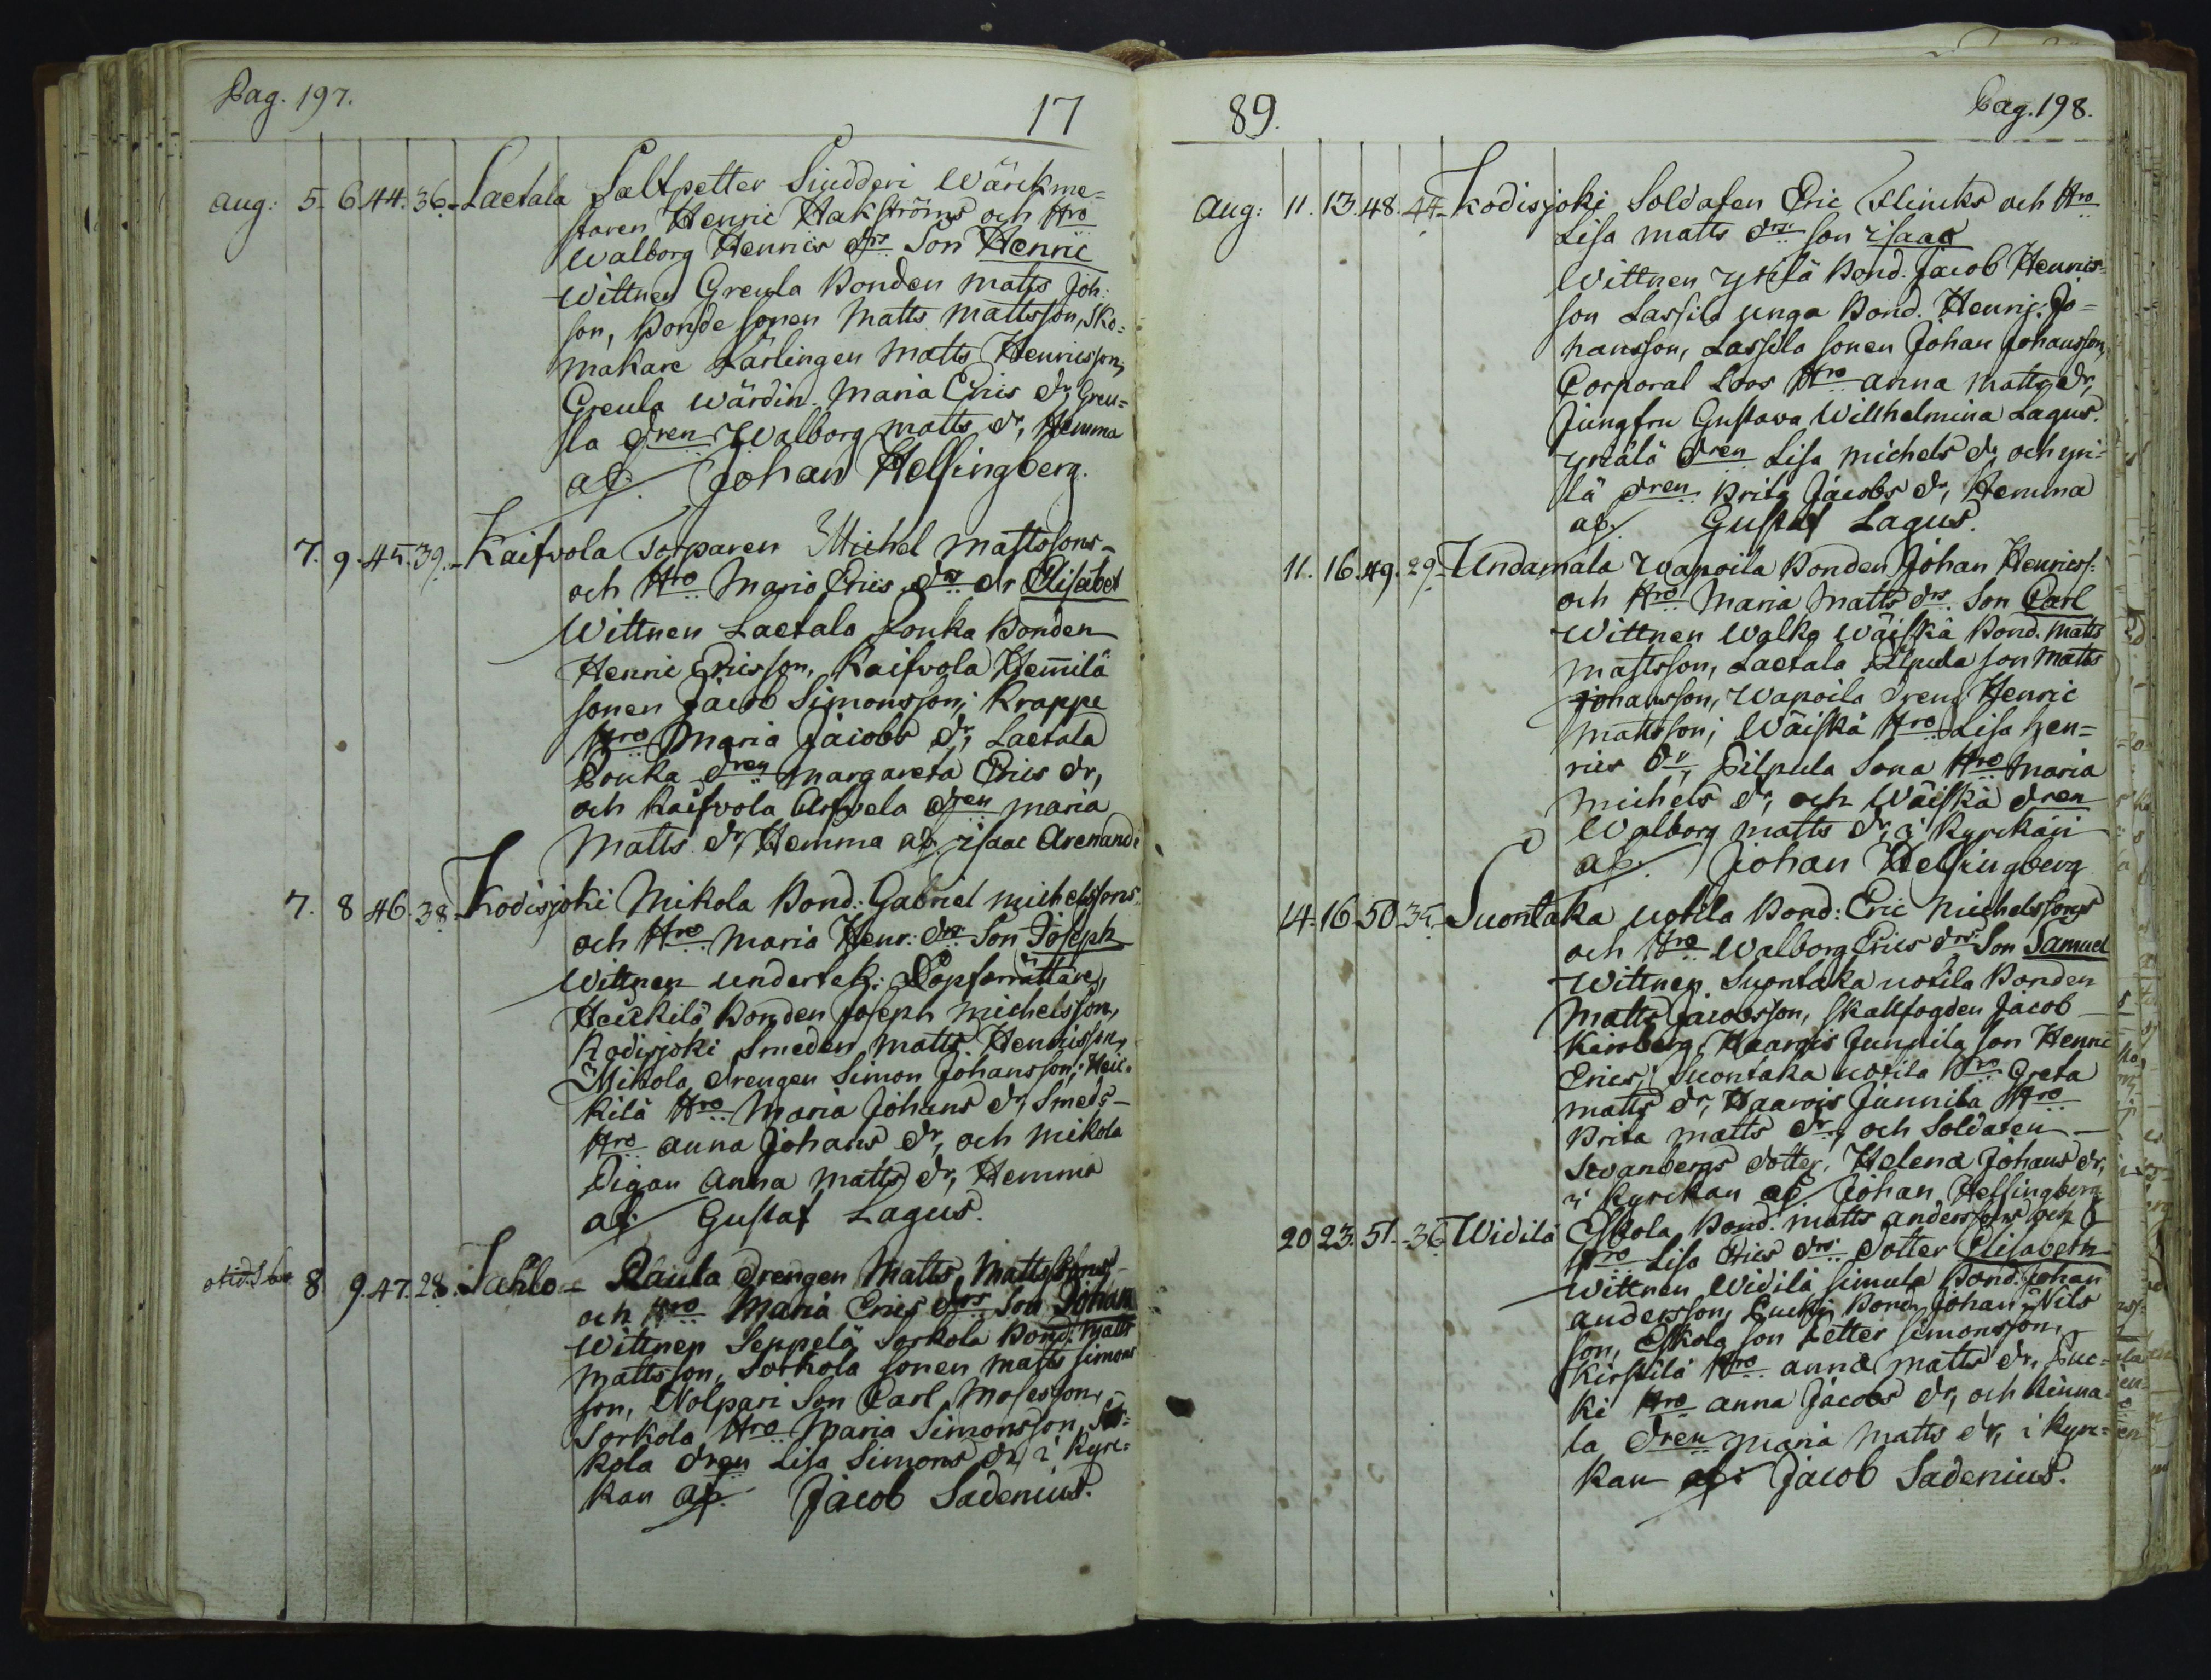 Pag. 197.
17
Aug: 5. 6. 44. 36. Laetala Saltpetter Siudderi Wärckme=
staren Henric Hakströms och Hro
Walborg Henrics drs Son Henric
Wittnen Greula Bonden Matts Joh:
son, Bonde sonen Matts Mattsson, Sko=
makare Lärlingen Matts Henricsson,
Greula Wärdin. Maria Erics dr, Greu=
la dren Walborg Matts dr, Hemma
af. Johan Helsingberg.
7. 9. 45. 39. Kaifvola Torparen Michel Mattssons
och Hro Maria Erics drs dr Elisabet
Wittnen Laetala Louka Bonden
Henric Ericsson, Kaifvola Hemilä
sonen Jacob Simonsson, Krappe
Hro Maria Jacobs dr, Laetala
Louka dren Margareta Erics dr,
och Kaifvola Arfvela dren Maria
Matts dr, Hemma af. Isaac Arenande
7. 8 46. 38. Kodisjoki Mikola Bond: Gabriel Michelssons
och Hro Maria Henr: drs Son Joseph
Wittnen undertek: Döpförrättare,
Heickilä Bonden Joseph Michelsson,
Kodisjoki Smeden Matts Henricsson,
Mikola drengen Simon Johansson, Heic=
kilä Hro Maria Johans dr, Smeds
Hro Anna Johans dr, och Mikola
Pigan Anna Matts dr, Hemma
af. Gustaf Lagus.
8. 9. 47. 28. Sahlo Raula drengen Matts Mattssons
och Hro Maria Erics drs Son Johan
Wittnen Seppelä Sorkola Bond. Matts
Mattsson, Sorkola sonen Matts Simons
son, Nolpari Son Carl Mosesson,
Sorkola Hro Maria Simonsson, Sor=
kola dren Lisa Simons dr, i Kyrc=
kan af. Jacob Sadenius.
89.
Pag. 198.
Aug: 11. 13. 48. 44. Kodisjoki Soldaten Eric Flincks och Hro
Lisa Matts drs son Isaac
Wittnen Yrilä Bond. Jacob Henrics=
son Lassila unga Bond. Henric Jo=
hansson, Lassila sonen Johan Johansson,
Corporal Loos Hro Anna Matts dr,
Jungfru Gustava Willhelmina Lagus.
Yrjälä dren Lisa Michels dr, och Yri=
lä dren Brita Jacobs dr, Hemma
af. Gustaf Lagus.
11. 16. 49. 29. Undamala Wapoila Bonden Johan Henricss:
och Hro Maria Matts drs Son Carl
Wittnen Walko Wäiskä Bond. Matts
Mattsson, Laetala Pilpula son Matts
Johansson, Wapoila dreng Henric
Mattsson; Wäiskä Hro Lisa Hen=
rics dr, Pilpula Sona Hro Maria
Michels dr, och Wäiskä dren
Walborg Matts dr, i Kyrckan
af. Johan Helsingberg
14. 16. 50. 35. Suontaka Uotila Bond: Eric Michelssons
och Hro Walborg Erics drs Son Samuel
Wittnen Suontaka Uotila Bonden
Matts Jacobsson, Skallfogden Jacob
Kinberg, Haarois Junnila son Henric
Erics, Suontaka Uotila Hro Greta
Matts dr, Haarois Junnila Hro
Brita Matts dr, och Soldaten
Svanbergs dotter, Helena Johans dr,
i Kyrckan af. Johan Helsingberg
20 23. 51. 36. Widilä Eskola Bond: Matts Anderssons och
Hro Lisa Erics drs dotter Elisabeth
Wittnen Widilä Simula Bond. Johan
Andersson, Lucki Bond. Johan Nils
son, Eskola son Petter Simonsson,
Kirstilä Hro Anna Matts dr, Luc=
ki Hro Anna Jacobs dr, och Hinna
la dren Maria Matts dr, i Kyrc=
kan af: Jacob Sadenius.